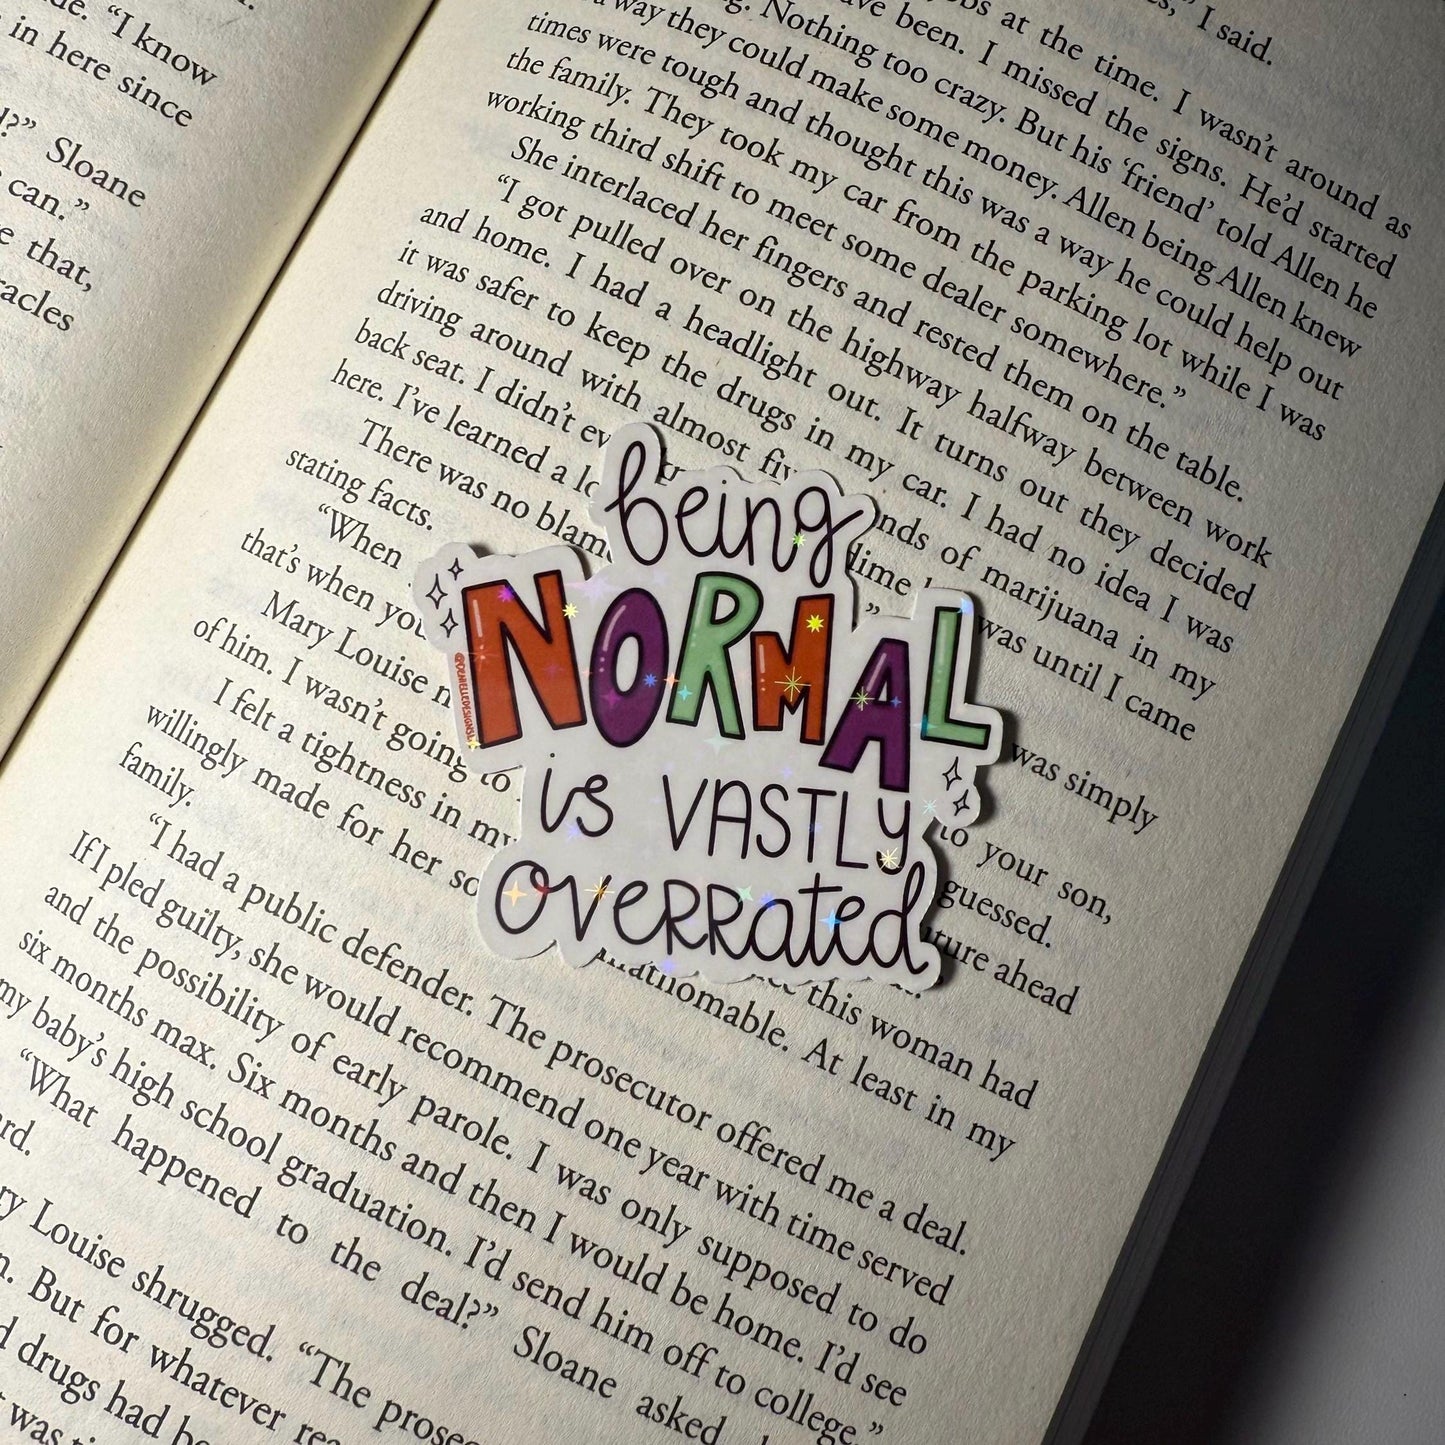 de. “I know
in here since
Sloane
can.”
that,
I said.
at the time. I wasn’t around as
have been. I missed the signs. He’d started
Nothing too crazy. But his ‘friend’ told Allen he
way they could make some money. Allen being Allen knew
times were tough and thought this was a way he could help out
the family. They took my car from the parking lot while I was
working third shift to meet some dealer somewhere.”
She interlaced her fingers and rested them on the table.
“I got pulled over on the highway halfway between work
and home. I had a headlight out. It turns out they decided
it was safer to keep the drugs in my car. I had no idea I was
driving around with almost nds of marijuana in my
back seat. I didn’t dime was until I came
here. I’ve learned a
There was no blam was simply
stating facts.
“When to your son,
that’s when you guessed.
Mary Louise ahead
of him. I wasn’t going to
I felt a tightness in my this woman had
willingly made for her unfathomable. At least in my
family.
“I had a public defender. The prosecutor offered me a deal.
If I pled guilty, she would recommend one year with time served
and the possibility of early parole. I was only supposed to do
six months max. Six months and then I would be home. I’d see
my baby’s high school graduation. I’d send him off to college.”
“What happened to the deal?” Sloane asked
rd.
ry Louise shrugged. “The prosec
But for whatever
drugs had
was
being
NORMAL
is VASTLY
OVERRATED